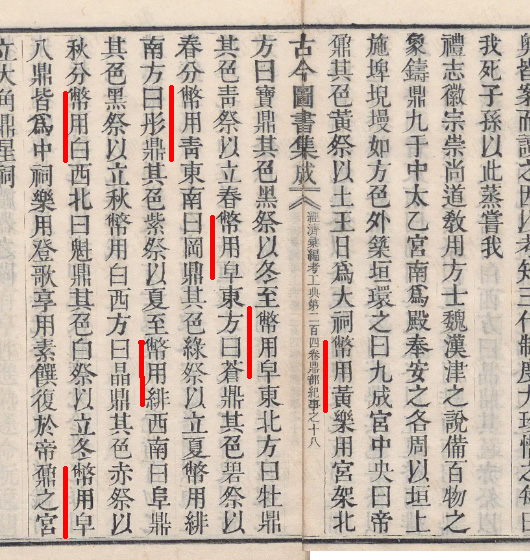 我死子孫以此蒸嘗我
禮志徽宗崇尚道教用方士魏漢津之說備百物之
象鑄鼎九于中太乙宮南爲殿奉安之各周以垣上
施埤堄墁如方色外築垣環之曰九成宮中央曰帝
鼐其色黃祭以土王日爲大祠幣用黃樂用宮架北
古今圖書集成
經濟彙編考工典第二百四卷鼎部紀事之十八
方曰寶鼎其色黑祭以冬至幣用皁東北方曰牡鼎
其色靑祭以立春幣用皁東方曰蒼鼎其色碧祭以
春分幣用靑東南曰岡鼎其色綠祭以立夏幣用緋
南方曰彤鼎其色紫祭以夏至幣用緋西南曰阜鼎
其色黑祭以立秋幣用白西方曰晶鼎其色赤祭以
秋分幣用白西北曰魁鼎其色白祭以立冬幣用皁
八鼎皆爲中祠樂用登歌享用素饌復於帝鼐之宮
立大角鼎星祠